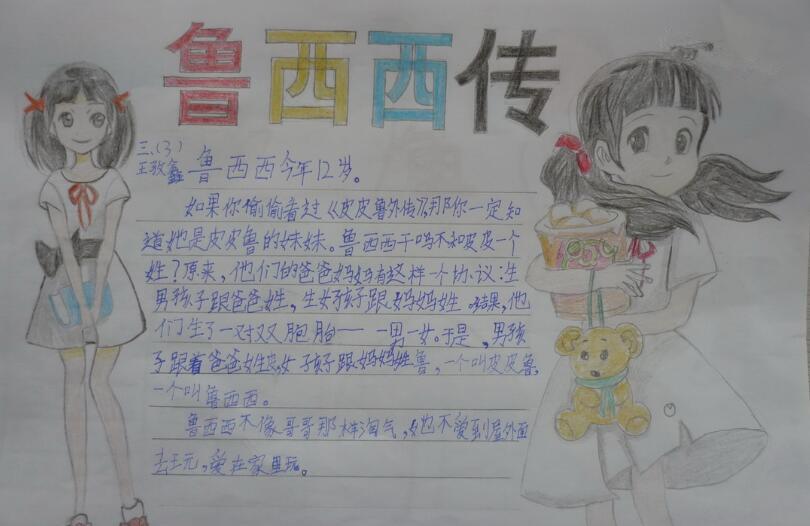 鲁西西传
三、(3)
王敬鑫
鲁西西今年12岁。
如果你偷偷看过《皮皮鲁外传》,那你一定知
道她是皮皮鲁的妹妹。鲁西西干吗不和皮皮一个
姓?原来,他们的爸爸妈妈有这样一个协议:生
男孩子跟爸爸姓,生女孩子跟妈妈姓。结果,他
们生了一对双胞胎——一男一女。于是,男孩
子跟着爸爸姓皮,女孩子跟妈妈姓鲁,一个叫皮皮鲁,
一个叫鲁西西。
鲁西西不像哥哥那样淘气,她不爱到屋外面
去玩,爱在家里玩。